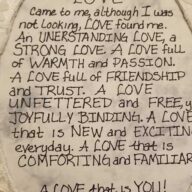 LOVE
Came to me, although I was
not looking, LOVE found me.
An UNERSTANDING LOVE, a
STRONG LOVE. A LOVE full
of WARMTH and PASSION.
A LOVE full of FRIENDSHIP
and TRUST. A LOVE
UNFETTERED and FREE, y
JOYFULLY BINDING. A LOVE
that is NEW and EXCITIN
everyday. A LOVE that is
COMFORTING and FAMILIAR
A LOVE that is YOU!